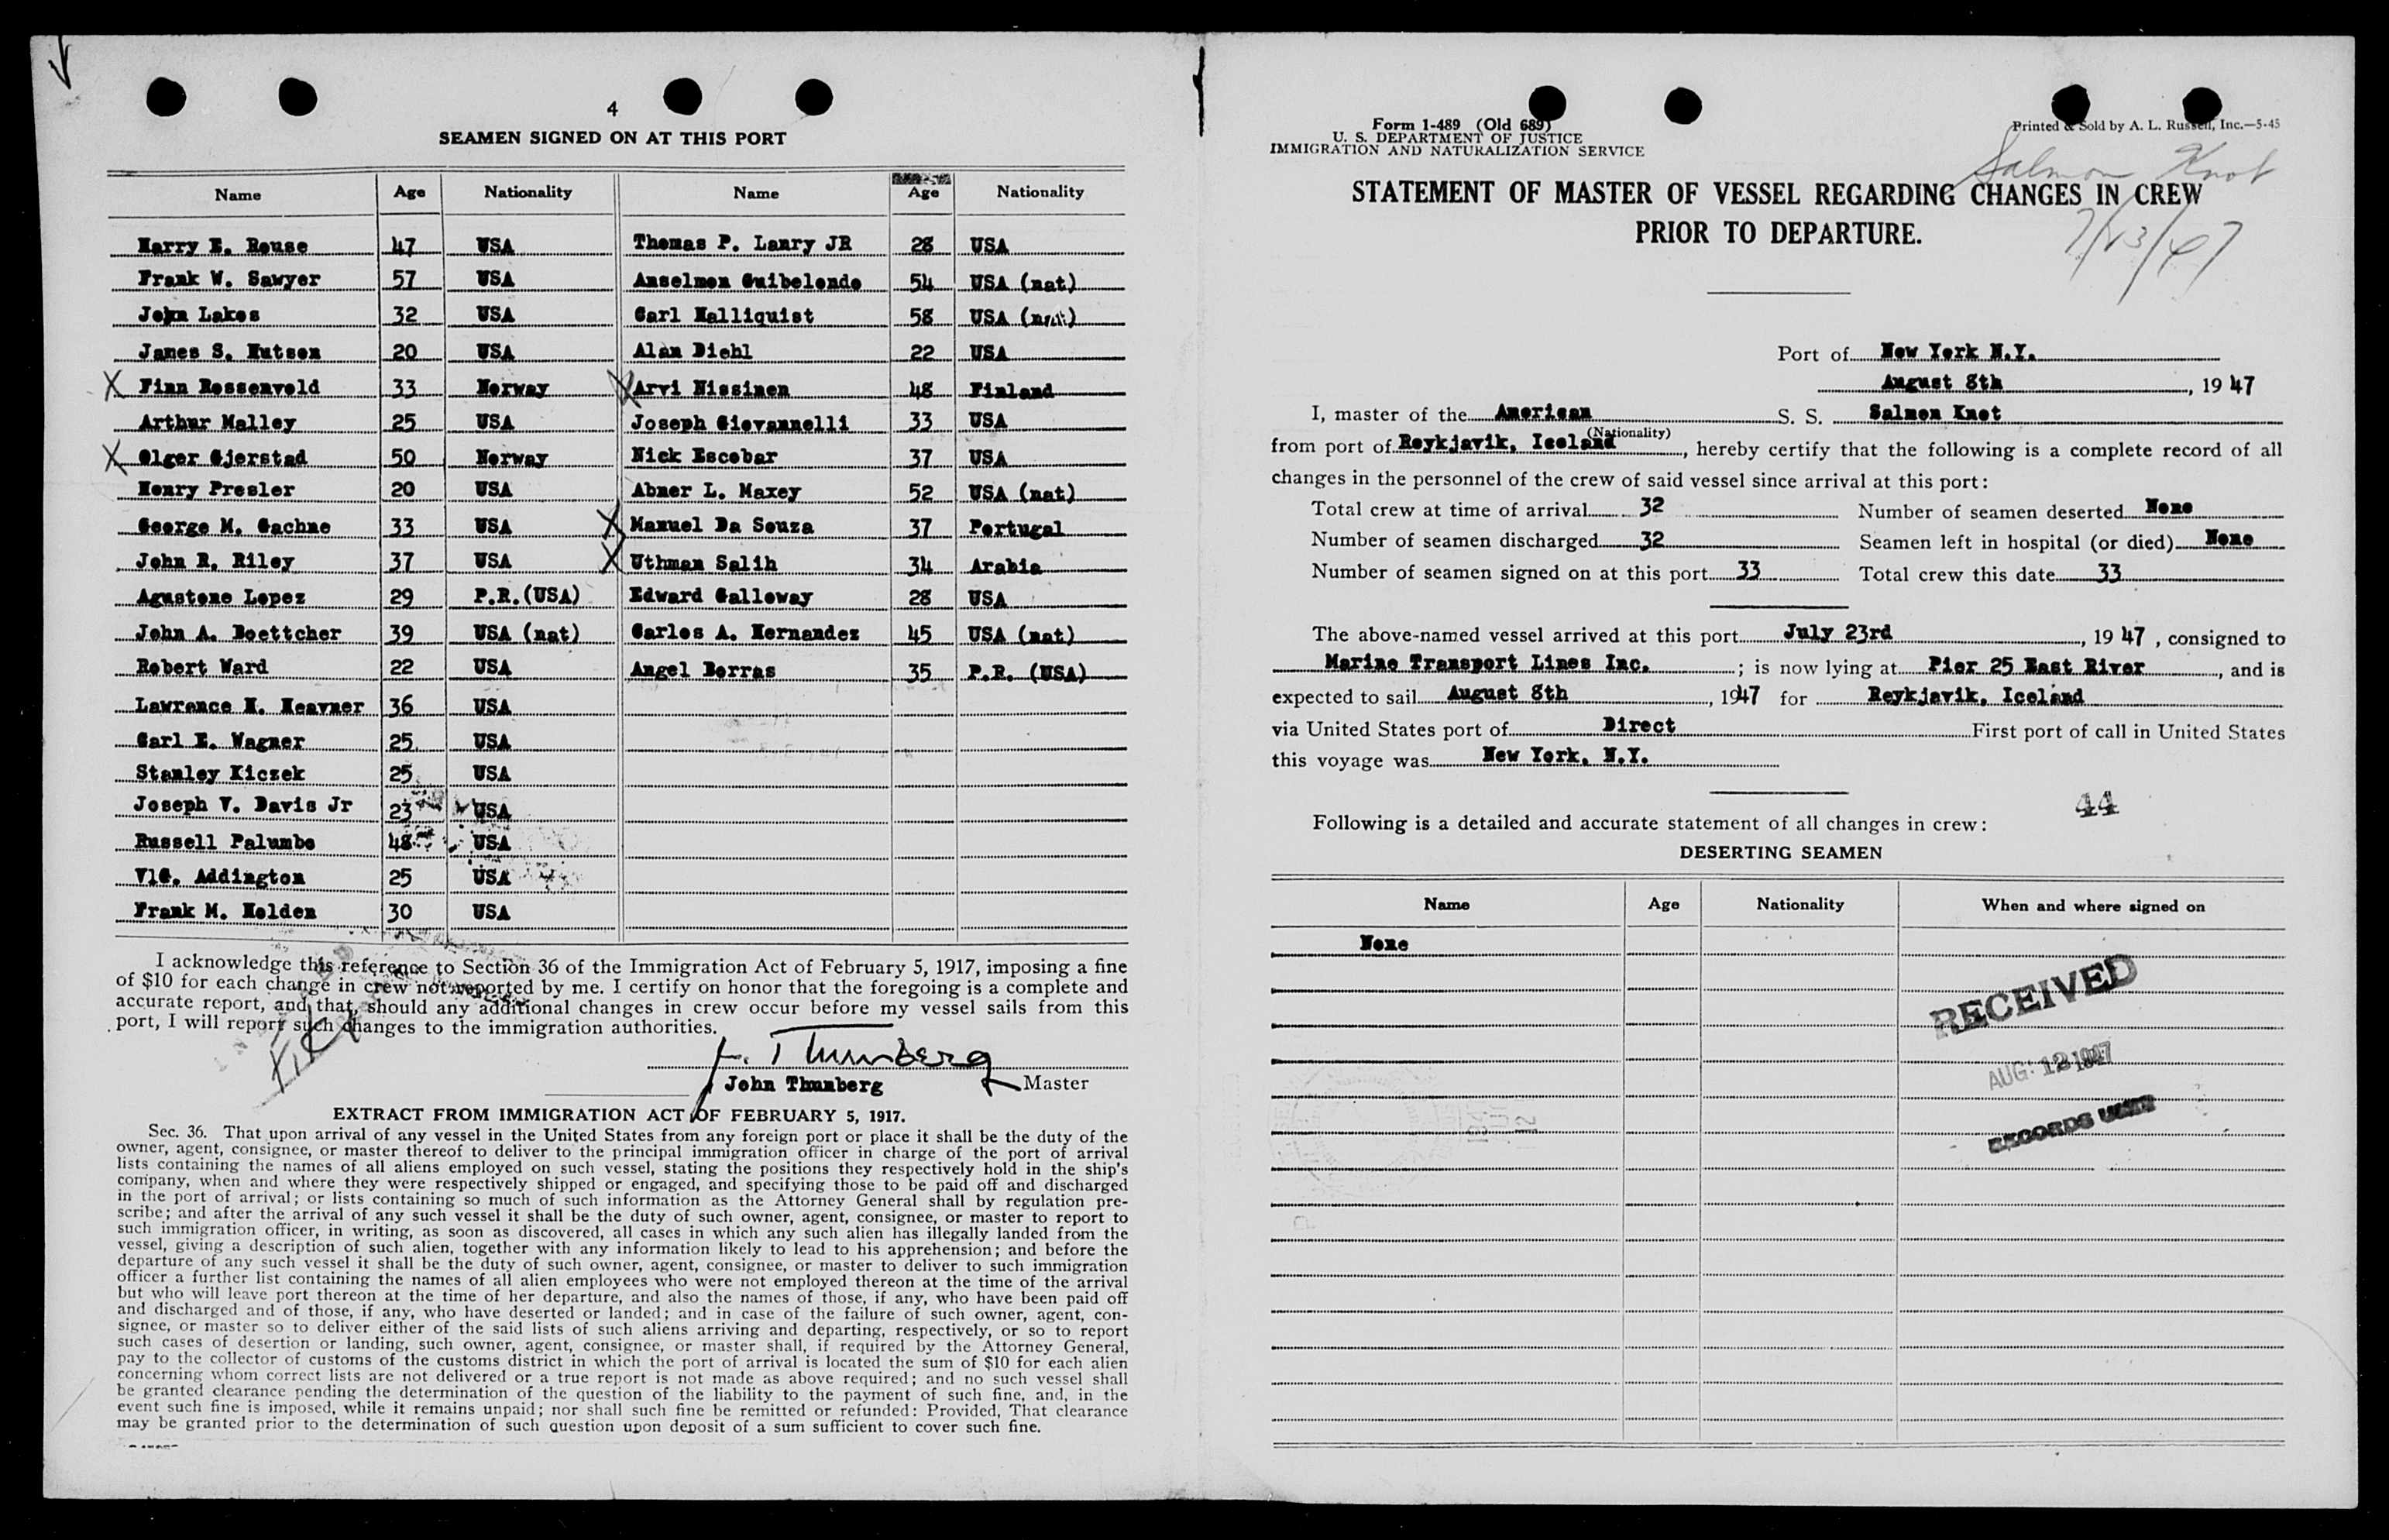 4
SEAMEN SIGNED ON AT THIS PORT
Name Age Nationality Name Age Nationality
Harry E. Rouse 47 USA Thomas P. Lanry JR 28 USA
Frank W. Sawyer 57 USA Anselmon Guibelondo 54 USA (nat)
John Lakos 32 USA Carl Halliquist 58 USA (nat)
James S. Hutson 20 USA Alan Diehl 22 USA
X Finn Rossenvold 33 Norway X Arvi Nissinen 48 Finland
Arthur Malley 25 USA Joseph Giovannelli 33 USA
X Olger Gjerstad 50 Norway Nick Escobar 37 USA
Henry Presler 20 USA Abner L. Maxey 52 USA (nat)
George M. Gachne 33 USA X Manuel Da Souza 37 Portugal
John R. Riley 37 USA X Uthman Salih 34 Arabia
Agustone Lopez 29 P.R.(USA) Edward Galloway 28 USA
John A. Boettcher 39 USA (nat) Carlos A. Hernandez 45 USA (nat)
Robert Ward 22 USA Angel Borras 35 P.R. (USA)
Lawrence H. Heavner 36 USA
Carl E. Wagner 25 USA
Stanley Kiczek 25 USA
Joseph V. Davis Jr 23 USA
Russell Palumbo 48 USA
V1G. Addington 25 USA
Frank M. Holden 30 USA
I acknowledge this reference to Section 36 of the Immigration Act of February 5, 1917, imposing a fine
of $10 for each change in crew not reported by me. I certify on honor that the foregoing is a complete and
accurate report, and that, should any additional changes in crew occur before my vessel sails from this
port, I will report such changes to the immigration authorities.
J. Thunberg
John Thunberg Master
EXTRACT FROM IMMIGRATION ACT OF FEBRUARY 5, 1917.
Sec. 36. That upon arrival of any vessel in the United States from any foreign port or place it shall be the duty of the
owner, agent, consignee, or master thereof to deliver to the principal immigration officer in charge of the port of arrival
lists containing the names of all aliens employed on such vessel, stating the positions they respectively hold in the ship's
company, when and where they were respectively shipped or engaged, and specifying those to be paid off and discharged
in the port of arrival; or lists containing so much of such information as the Attorney General shall by regulation pre-
scribe; and after the arrival of any such vessel it shall be the duty of such owner, agent, consignee, or master to report to
such immigration officer, in writing, as soon as discovered, all cases in which any such alien has illegally landed from the
vessel, giving a description of such alien, together with any information likely to lead to his apprehension; and before the
departure of any such vessel it shall be the duty of such owner, agent, consignee, or master to deliver to such immigration
officer a further list containing the names of all alien employees who were not employed thereon at the time of the arrival
but who will leave port thereon at the time of her departure, and also the names of those, if any, who have been paid off
and discharged and of those, if any, who have deserted or landed; and in case of the failure of such owner, agent, con-
signee, or master so to deliver either of the said lists of such aliens arriving and departing, respectively, or so to report
such cases of desertion or landing, such owner, agent, consignee, or master shall, if required by the Attorney General,
pay to the collector of customs of the customs district in which the port of arrival is located the sum of $10 for each alien
concerning whom correct lists are not delivered or a true report is not made as above required; and no such vessel shall
be granted clearance pending the determination of the question of the liability to the payment of such fine, and, in the
event such fine is imposed, while it remains unpaid; nor shall such fine be remitted or refunded: Provided, That clearance
may be granted prior to the determination of such question upon deposit of a sum sufficient to cover such fine.
Form 1-489 (Old 689)
U. S. DEPARTMENT OF JUSTICE
IMMIGRATION AND NATURALIZATION SERVICE
Printed & Sold by A. L. Russell, Inc.—5-45
Salmon Knot
STATEMENT OF MASTER OF VESSEL REGARDING CHANGES IN CREW
PRIOR TO DEPARTURE.
7/23/47
Port of New York N.Y.
August 8th, 1947
I, master of the American S. S. Salmon Knot
(Nationality)
from port of Reykjavik, Iceland, hereby certify that the following is a complete record of all
changes in the personnel of the crew of said vessel since arrival at this port:
Total crew at time of arrival 32 Number of seamen deserted None
Number of seamen discharged 32 Seamen left in hospital (or died) None
Number of seamen signed on at this port 33 Total crew this date 33
The above-named vessel arrived at this port July 23rd, 1947, consigned to
Marine Transport Lines Inc.; is now lying at Pier 25 East River, and is
expected to sail August 8th, 1947 for Reykjavik, Iceland
via United States port of Direct First port of call in United States
this voyage was New York, N.Y.
44
Following is a detailed and accurate statement of all changes in crew:
DESERTING SEAMEN
Name Age Nationality When and where signed on
None
RECEIVED
AUG 12 1947
RECORDS UNIT